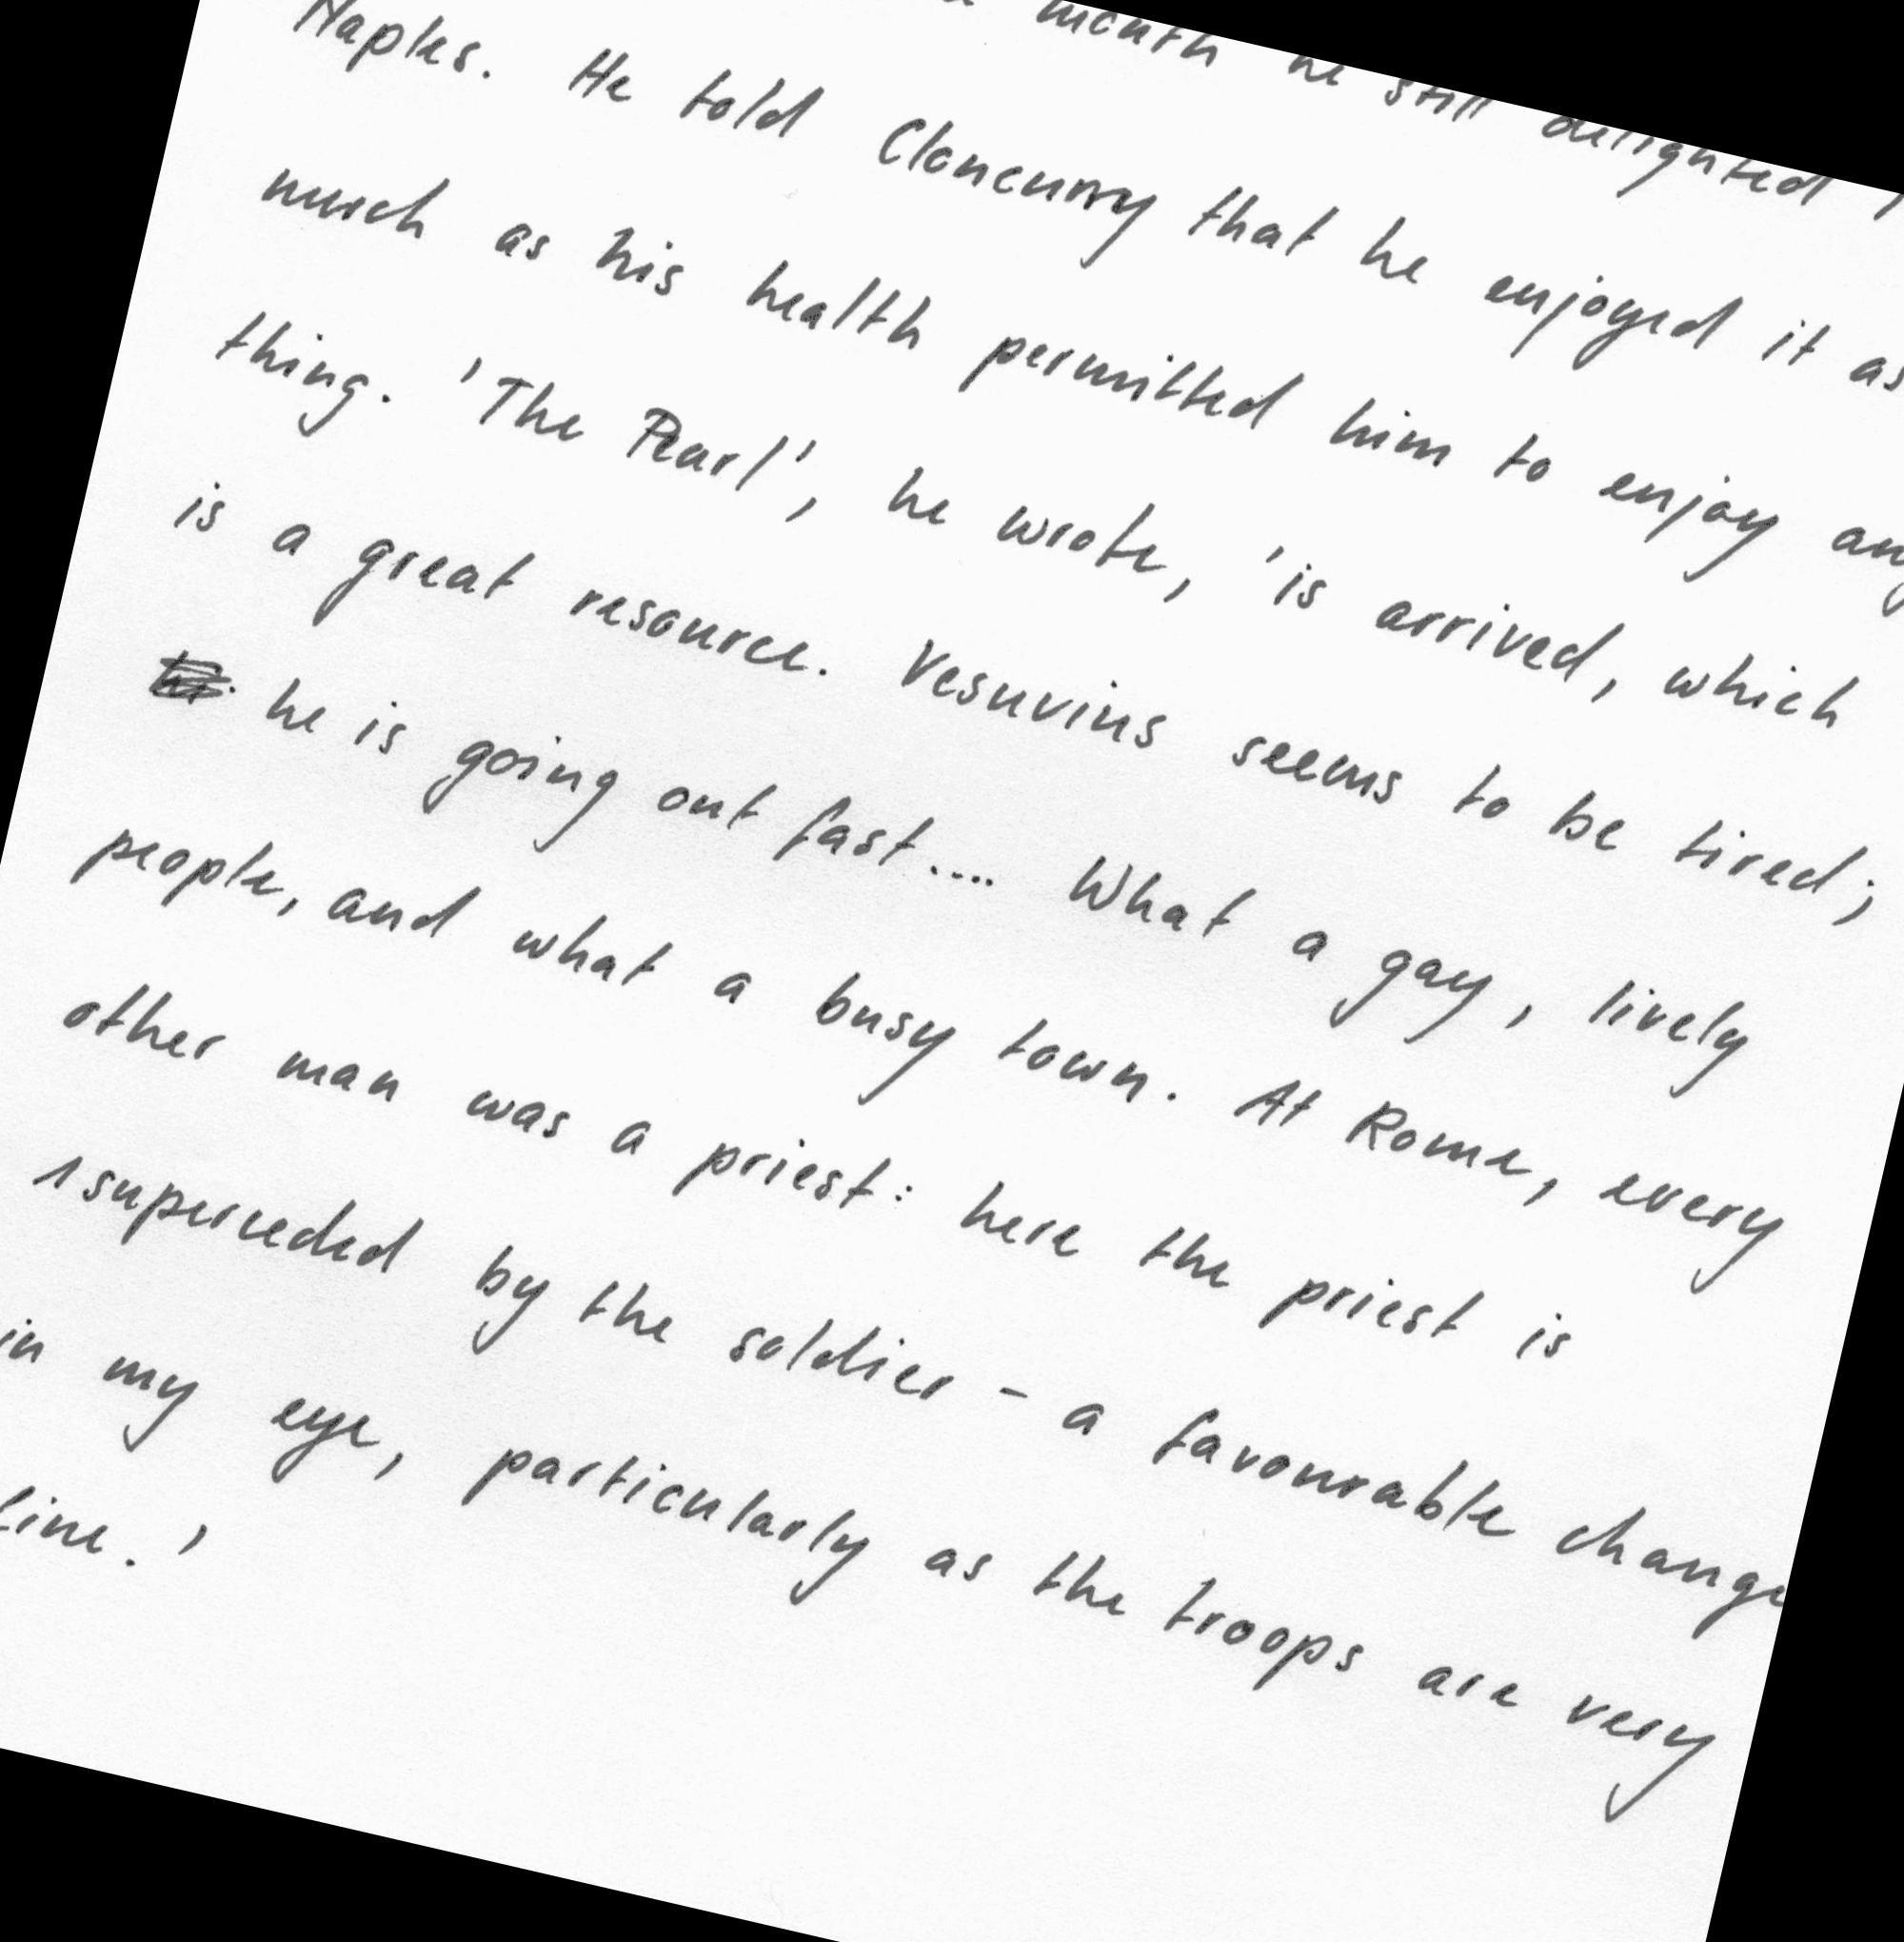 month he still delighted
Naples. He told Cloncurry that he enjoyed it as
much as his health permitted him to enjoy any
thing. 'The Pearl', he wrote, 'is arrived, which
is a great resource. Vesuvius seems to be tired;
he is going out fast.... What a gay, lively
people, and what a busy town. At Rome, every
other man was a priest: here the priest is
superceded by the soldier - a favourable change
in my eye, particularly as the troops are very
fine.'